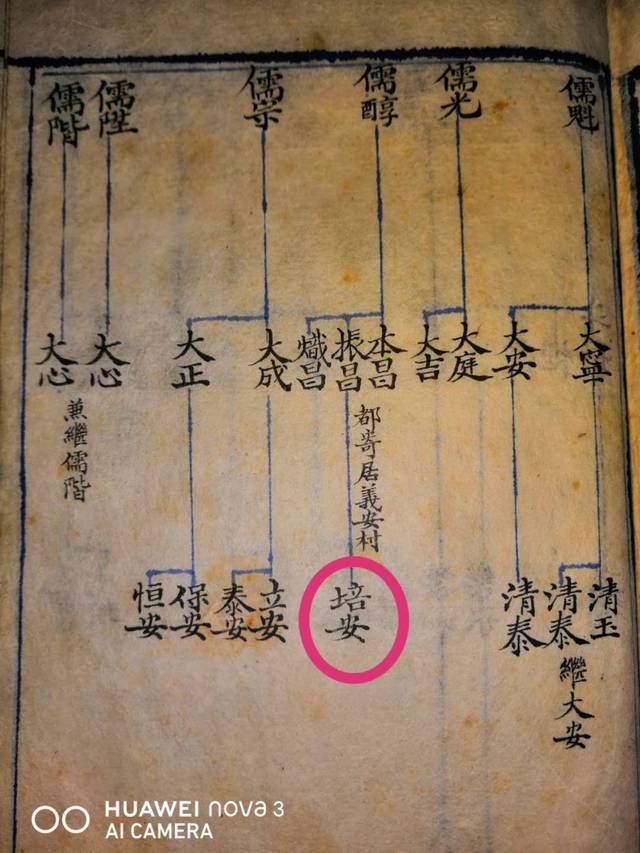 儒魁
儒光
儒醇
儒宗
儒陞
儒階
大寧
大安
大庭
大吉
本昌
振昌
熾昌
大成
大正
大心
大心
兼繼儒階
都寄居義安村
清玉
清泰
繼大安
清泰
培安
立安
泰安
保安
恒安
HUAWEI nova 3
AI CAMERA